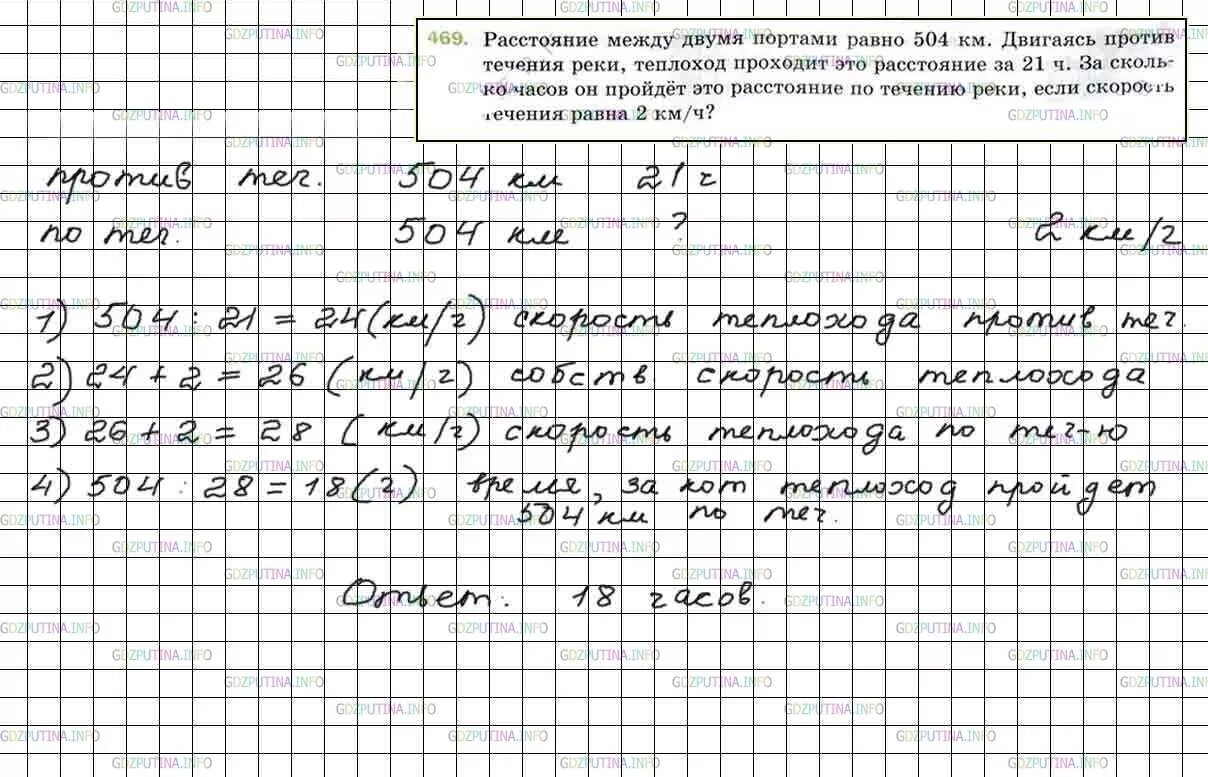 469. Расстояние между двумя портами равно 504 км. Двигаясь против
течения реки, теплоход проходит это расстояние за 21 ч. За сколь-
ко часов он пройдёт это расстояние по течению реки, если скорость
течения равна 2 км/ч?
против теч. 504 км 21 ч
по теч. 504 км ? 2 км/ч
1) 504 : 21 = 24 (км/ч) скорость теплохода против теч.
2) 24 + 2 = 26 (км/ч) собств скорость теплохода
3) 26 + 2 = 28 (км/ч) скорость теплохода по теч-ю
4) 504 : 28 = 18 (ч) время, за кот теплоход пройдет
504 км по теч.
Ответ: 18 часов.
GDZPUTINA.INFO